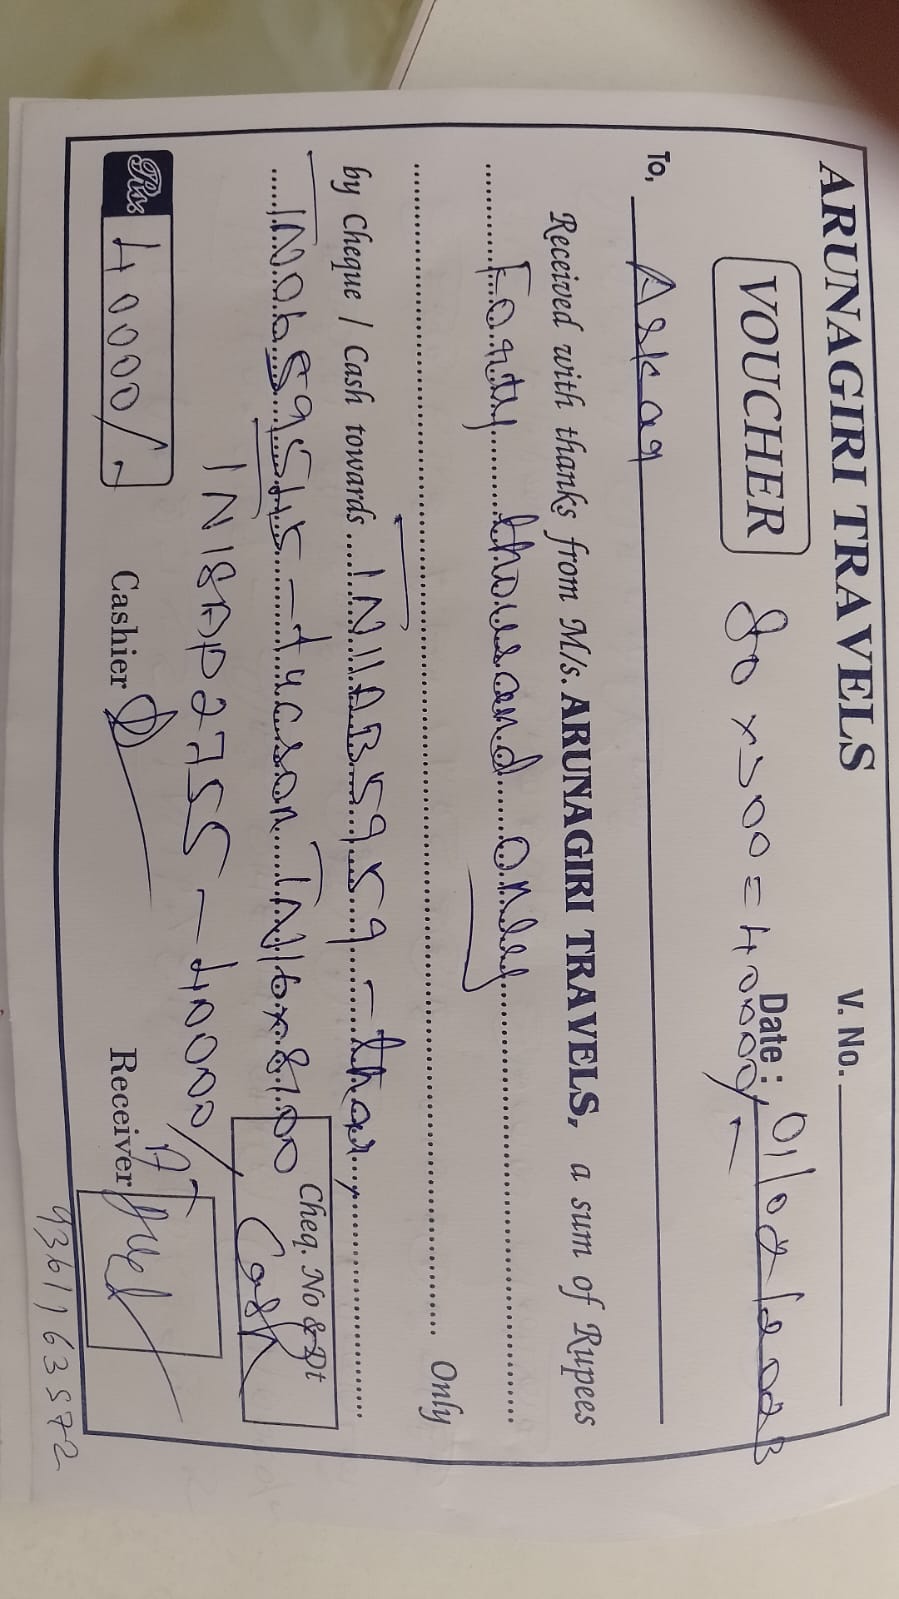 ARUNAGIRI TRAVELS
V. No.
VOUCHER
80 x 500 = 40000/-
Date : 01/02/2023
To,
Received with thanks from M/s. ARUNAGIRI TRAVELS, a sum of Rupees
Forty thousand only
Only
by Cheque / Cash towards TN11AB5959 - thar,
TN06 - tucson TN16x8100
Cheq. No & Dt
Cash
TN18AP2755 - 40000/
Rs. 40000/-
Cashier
Receiver
9361163572